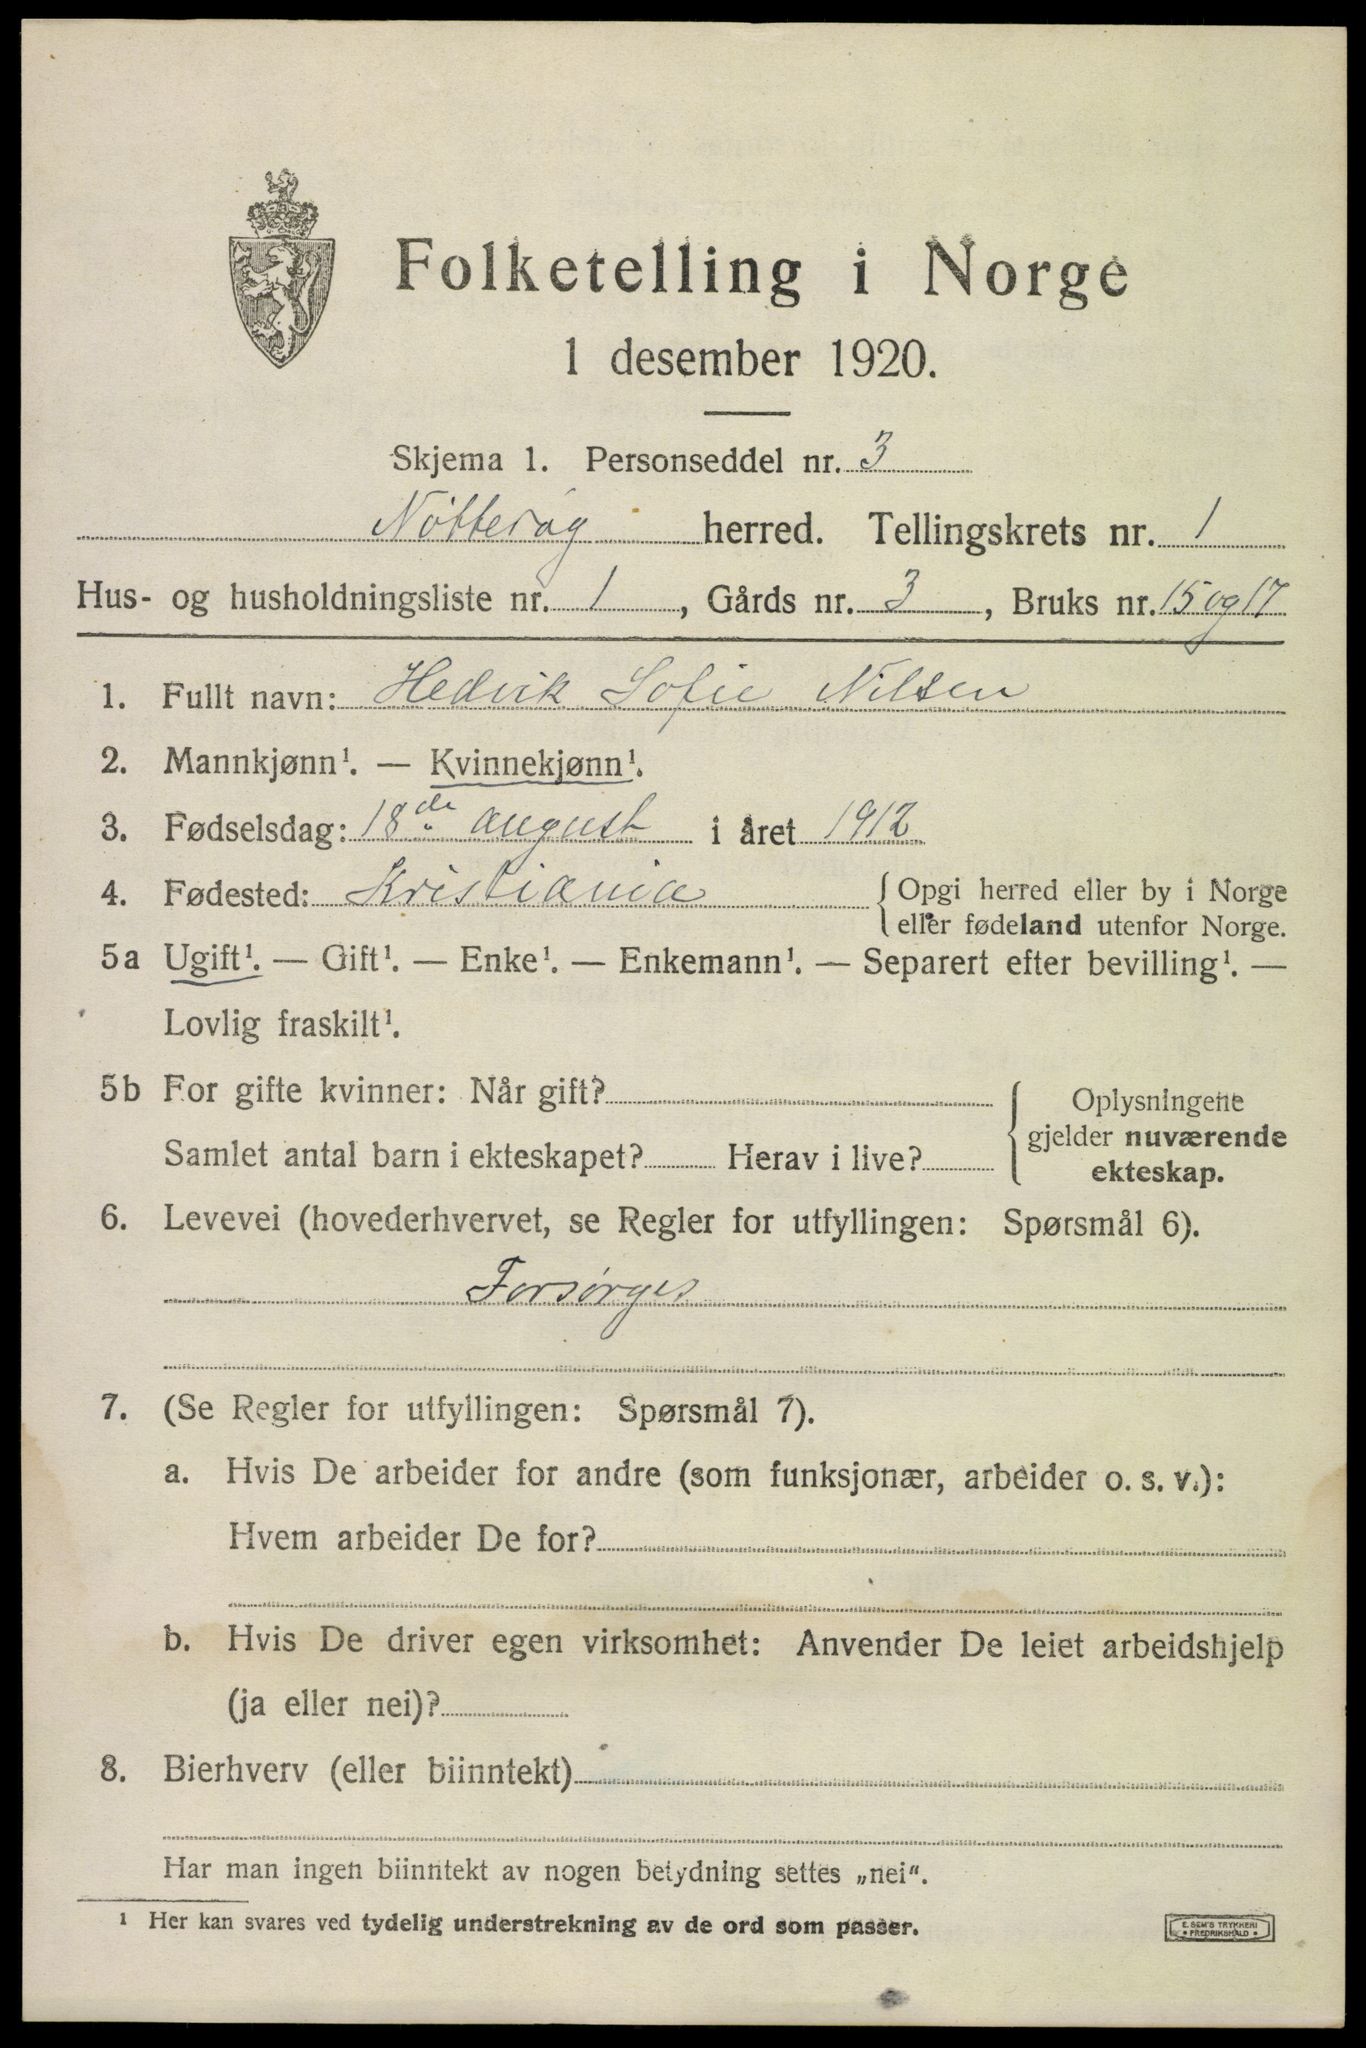 Folketelling i Norge
1 desember 1920.
Skjema 1. Personseddel nr. 3
Nötteröy herred. Tellingskrets nr. 1
Hus- og husholdningsliste nr. 1, Gårds nr. 3, Bruks nr. 15 og 17
1. Fullt navn: Hedvik Sofie Nilsen
2. Mannkjønn¹. — Kvinnekjønn¹.
3. Fødselsdag: 18de august i året 1912
4. Fødested: Kristiania {Opgi herred eller by i Norge
eller fødeland utenfor Norge.
5a Ugift¹. — Gift¹. — Enke¹. — Enkemann¹. — Separert efter bevilling¹. —
Lovlig fraskilt¹.
5b For gifte kvinner: Når gift?
Samlet antal barn i ekteskapet? Herav i live?
{Oplysningene
gjelder nuværende
ekteskap.
6. Levevei (hovederhvervet, se Regler for utfyllingen: Spørsmål 6).
Forsørges
7. (Se Regler for utfyllingen: Spørsmål 7).
a. Hvis De arbeider for andre (som funksjonær, arbeider o. s. v.):
Hvem arbeider De for?
b. Hvis De driver egen virksomhet: Anvender De leiet arbeidshjelp
(ja eller nei)?
8. Bierhverv (eller biinntekt)
Har man ingen biinntekt av nogen betydning settes „nei“.
¹ Her kan svares ved tydelig understrekning av de ord som passer.
E. SEM'S TRYKKERI
• FREDRIKSHALD •